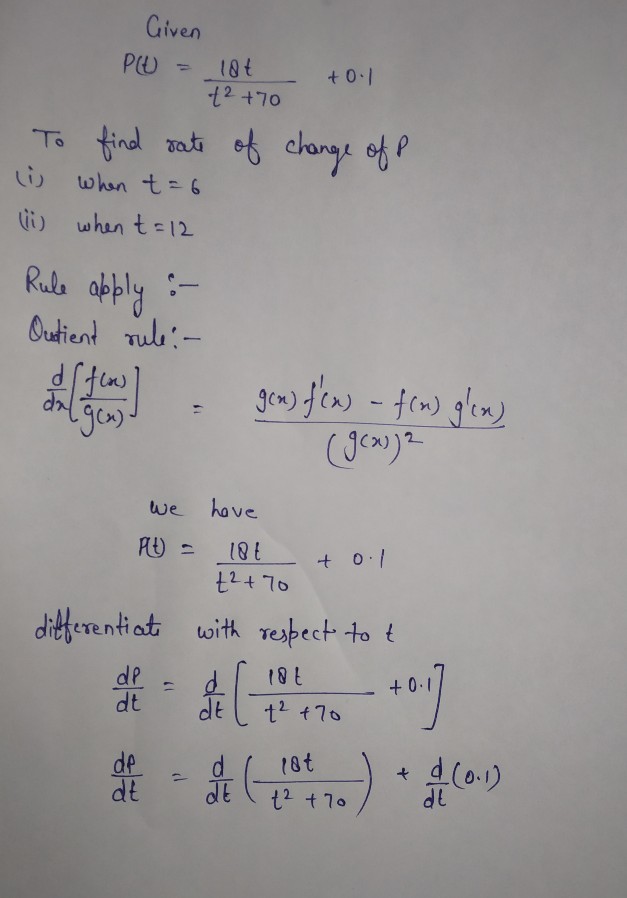 Given
P(t) = 18t / t² + 70 + 0.1
To find rate of change of P
(i) when t = 6
(ii) when t = 12
Rule apply :-
Qutient rule :-
d/dx [f(x)/g(x)] = g(x) f'(x) - f(x) g'(x) / (g(x))²
we have
P(t) = 18t / t² + 70 + 0.1
differentiate with respect to t
dP/dt = d/dt [18t / t² + 70 + 0.1]
dP/dt = d/dt (18t / t² + 70) + d/dt (0.1)